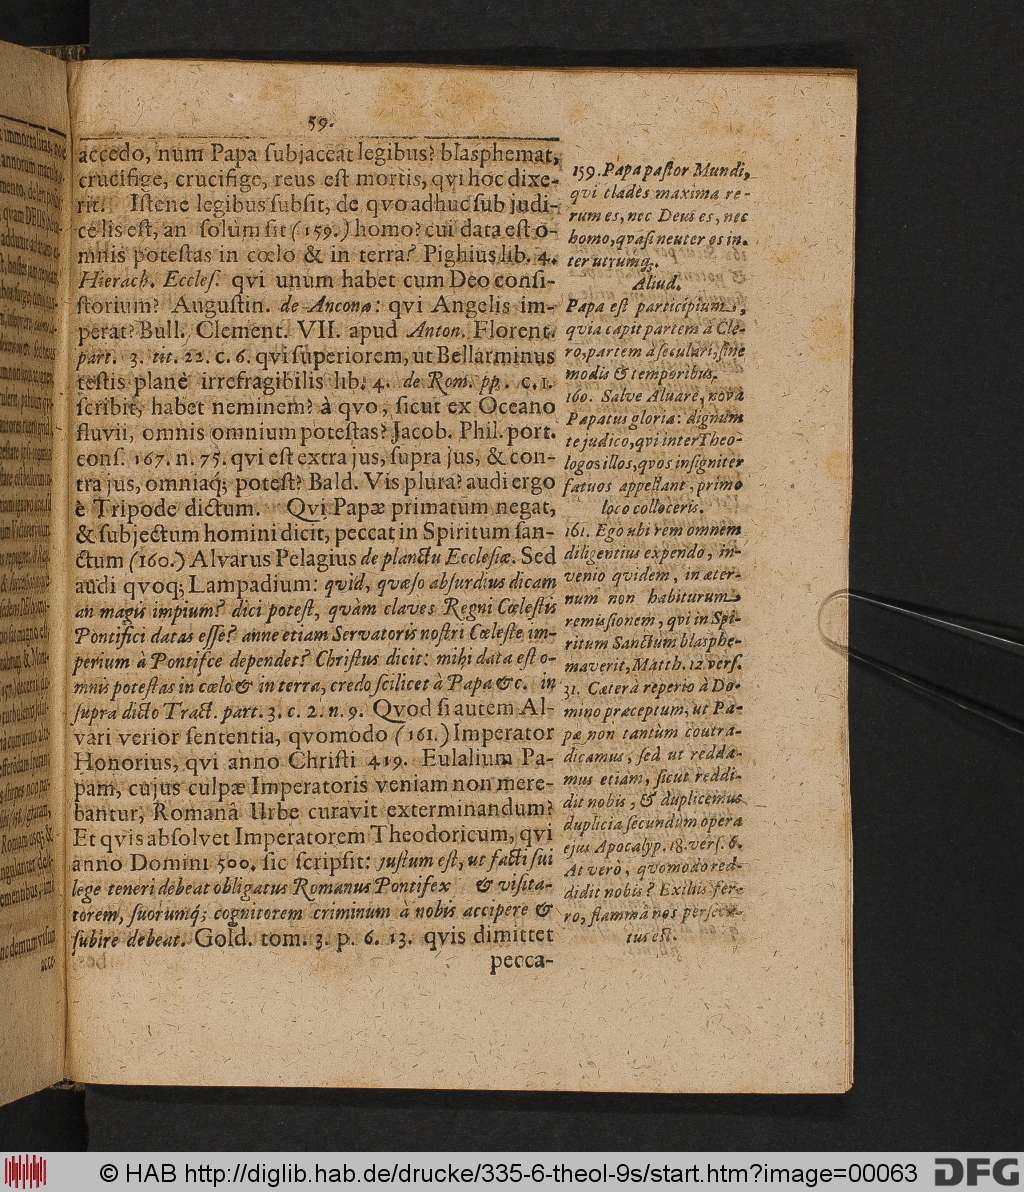 59.
accedo, num Papa subjaceat legibus? blasphemat,
crucifige, crucifige, reus est mortis, qvi hoc dixe-
rit. Istene legibus subsit, de qvo adhuc sub judi-
ce lis est, an solùm sit (159.) homo? cui data est o-
mnis potestas in cœlo & in terra? Pighius lib. 4.
Hierach. Eccles. qvi unum habet cum Deo consi-
storium? Augustin. de Ancona: qvi Angelis im-
perat? Bull. Clement. VII. apud Anton. Florent.
part. 3. tit. 22. c. 6. qvi superiorem, ut Bellarminus
testis planè irrefragibilis lib. 4. de Rom. pp. c. 1.
scribit, habet neminem? à qvo, sicut ex Oceano
fluvii, omnis omnium potestas? Jacob. Phil. port.
cons. 167. n. 75. qvi est extra jus, supra jus, & con-
tra jus, omniaq; potest? Bald. Vis plura? audi ergo
è Tripode dictum. Qvi Papæ primatum negat,
& subjectum homini dicit, peccat in Spiritum san-
ctum (160.) Alvarus Pelagius de planctu Ecclesiæ. Sed
audi qvoq; Lampadium: qvid, qvæso absurdius dicam
an magis impium? dici potest, qvàm claves Regni Cœlestis
Pontifici datas esse? anne etiam Servatoris nostri Cœleste im-
perium à Pontifice dependet? Christus dicit: mihi data est o-
mnis potestas in cœlo & in terra, credo scilicet à Papa &c. in
supra dicto Tract. part. 3. c. 2. n. 9. Qvod si autem Al-
vari verior sententia, qvomodo (161.) Imperator
Honorius, qvi anno Christi 419. Eulalium Pa-
pam, cujus culpæ Imperatoris veniam non mere-
bantur, Romanâ Urbe curavit exterminandum?
Et qvis absolvet Imperatorem Theodoricum, qvi
anno Domini 500. sic scripsit: justum est, ut facti sui
lege teneri debeat obligatus Romanus Pontifex & visita-
torem, suorumq; cognitorem criminum à nobis accipere &
subire debeat. Gold. tom. 3. p. 6. 13. qvis dimittet
pecca-
159. Papa pastor Mundi,
qvi clades maxima re-
rum es, nec Deus es, nec
homo, qvasi neuter es in-
ter utrumq;.
Aliud.
Papa est participium,
qvia capit partem à Cle-
ro, partem à seculari, sine
modis & temporibus.
160. Salve Aluare, nova
Papatus gloria: dignum
te judico, qvi inter Theo-
logos illos, qvos insigniter
fatuos appellant, primo
loco colloceris.
161. Ego ubi rem omnem
diligentius expendo, in-
venio qvidem, in æter-
num non habiturum
remissionem, qvi in Spi-
ritum Sanctum blasphe-
maverit, Matth. 12. vers.
31. Cæterà reperio à Do-
mino præceptum, ut Pa-
pæ non tantum contra-
dicamus, sed ut redda-
mus etiam, sicut reddi-
dit nobis, & duplicemus
duplicia secundum opera
ejus Apocalyp. 18. vers. 6.
At verò, qvomodo red-
didit nobis? Exiliis fer-
ro, flammâ nos persecu-
tus est.
© HAB http://diglib.hab.de/drucke/335-6-theol-9s/start.htm?image=00063
DFG